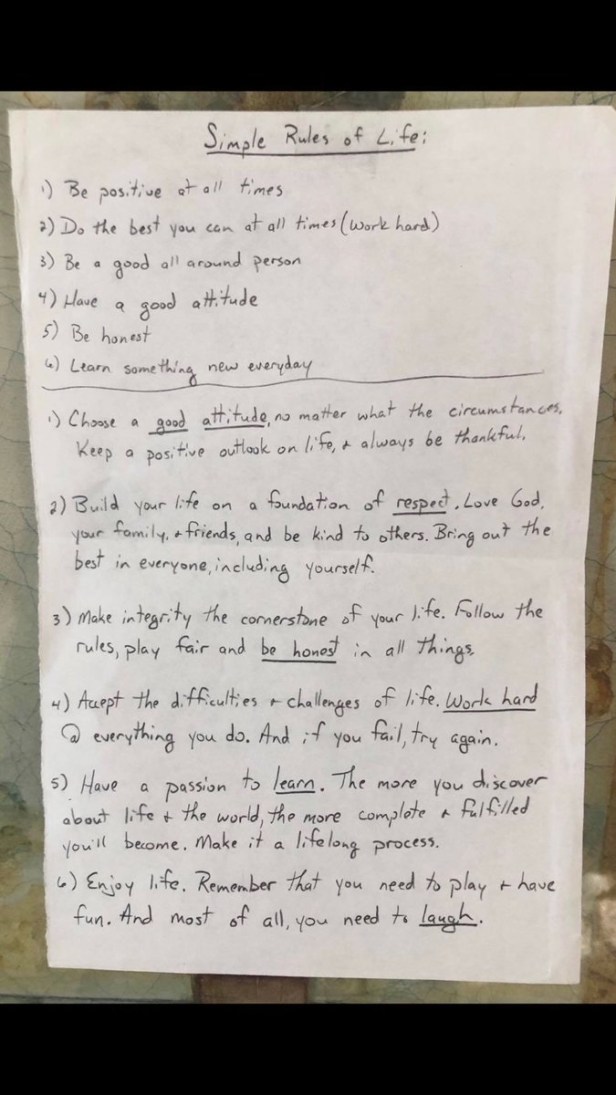 Simple Rules of Life:
1) Be positive at all times
2) Do the best you can at all times (work hard)
3) Be a good all around person
4) Have a good attitude
5) Be honest
6) Learn something new everyday
1) Choose a good attitude, no matter what the circumstances.
Keep a positive outlook on life, & always be thankful.
2) Build your life on a foundation of respect. Love God,
your family, & friends, and be kind to others. Bring out the
best in everyone, including yourself.
3) Make integrity the cornerstone of your life. Follow the
rules, play fair and be honest in all things.
4) Accept the difficulties & challenges of life. Work hard
@ everything you do. And if you fail, try again.
5) Have a passion to learn. The more you discover
about life & the world, the more complete & fulfilled
you'll become. Make it a lifelong process.
6) Enjoy life. Remember that you need to play & have
fun. And most of all, you need to laugh.